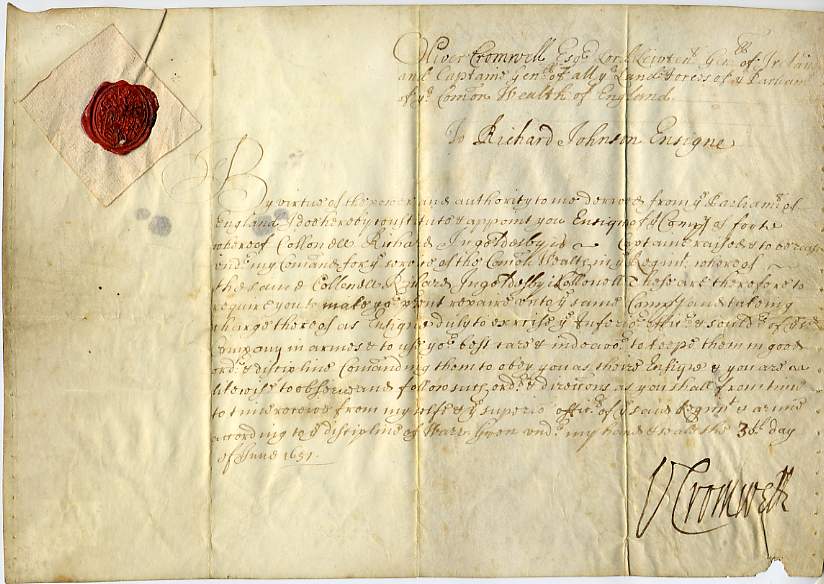 Oliver Cromwell Esqr Lord Lewtent Genll of Irelan
and Captaine Genll of all ye Land Forces of ye Parliamt
of ye Comon Wealth of England.
To Richard Johnson Ensigne
By virtue of the power and authority to me derived from ye Parliamt of
England I doe hereby constitute & appoint you Ensigne of ye Compy of foote
whereof Collonell Richard Ingoldesby is Captaine raised & to be
undr my Comand for ye service of the Comon Wealth in ye Regimt whereof
the same Collonell Richard Ingoldesby is Collonell These are therefore to
require you to make yor prsent repaire unto ye same Compy and taking
charge thereof as Ensigne duly to exercise ye Inferior officrs & souldrs of the
company in armes & to use yor best care & indeavor to keepe them in good
order & discipline Comanding them to obey you as theire Ensigne & you are
likewise to observe and follow such ordrs & direcions as you shall from time
to time receive from my selfe & ye superior officrs of ye said Regimt & armie
according to ye discipline of Warr Given undr my hand & seale the 3th day
of June 1651.
O Cromwell